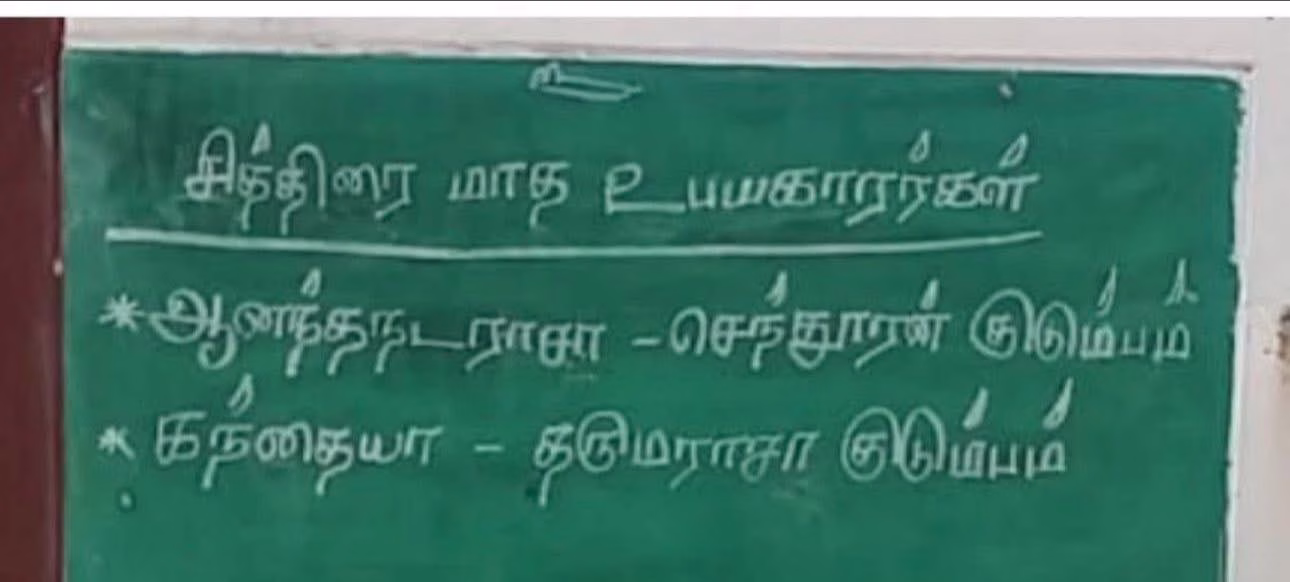 சித்திரை மாத உபயகாரர்கள்
*ஆனந்தநடராசா -செந்தூரன் குடும்பம்
* கந்தையா - தருமராசா குடும்பம்